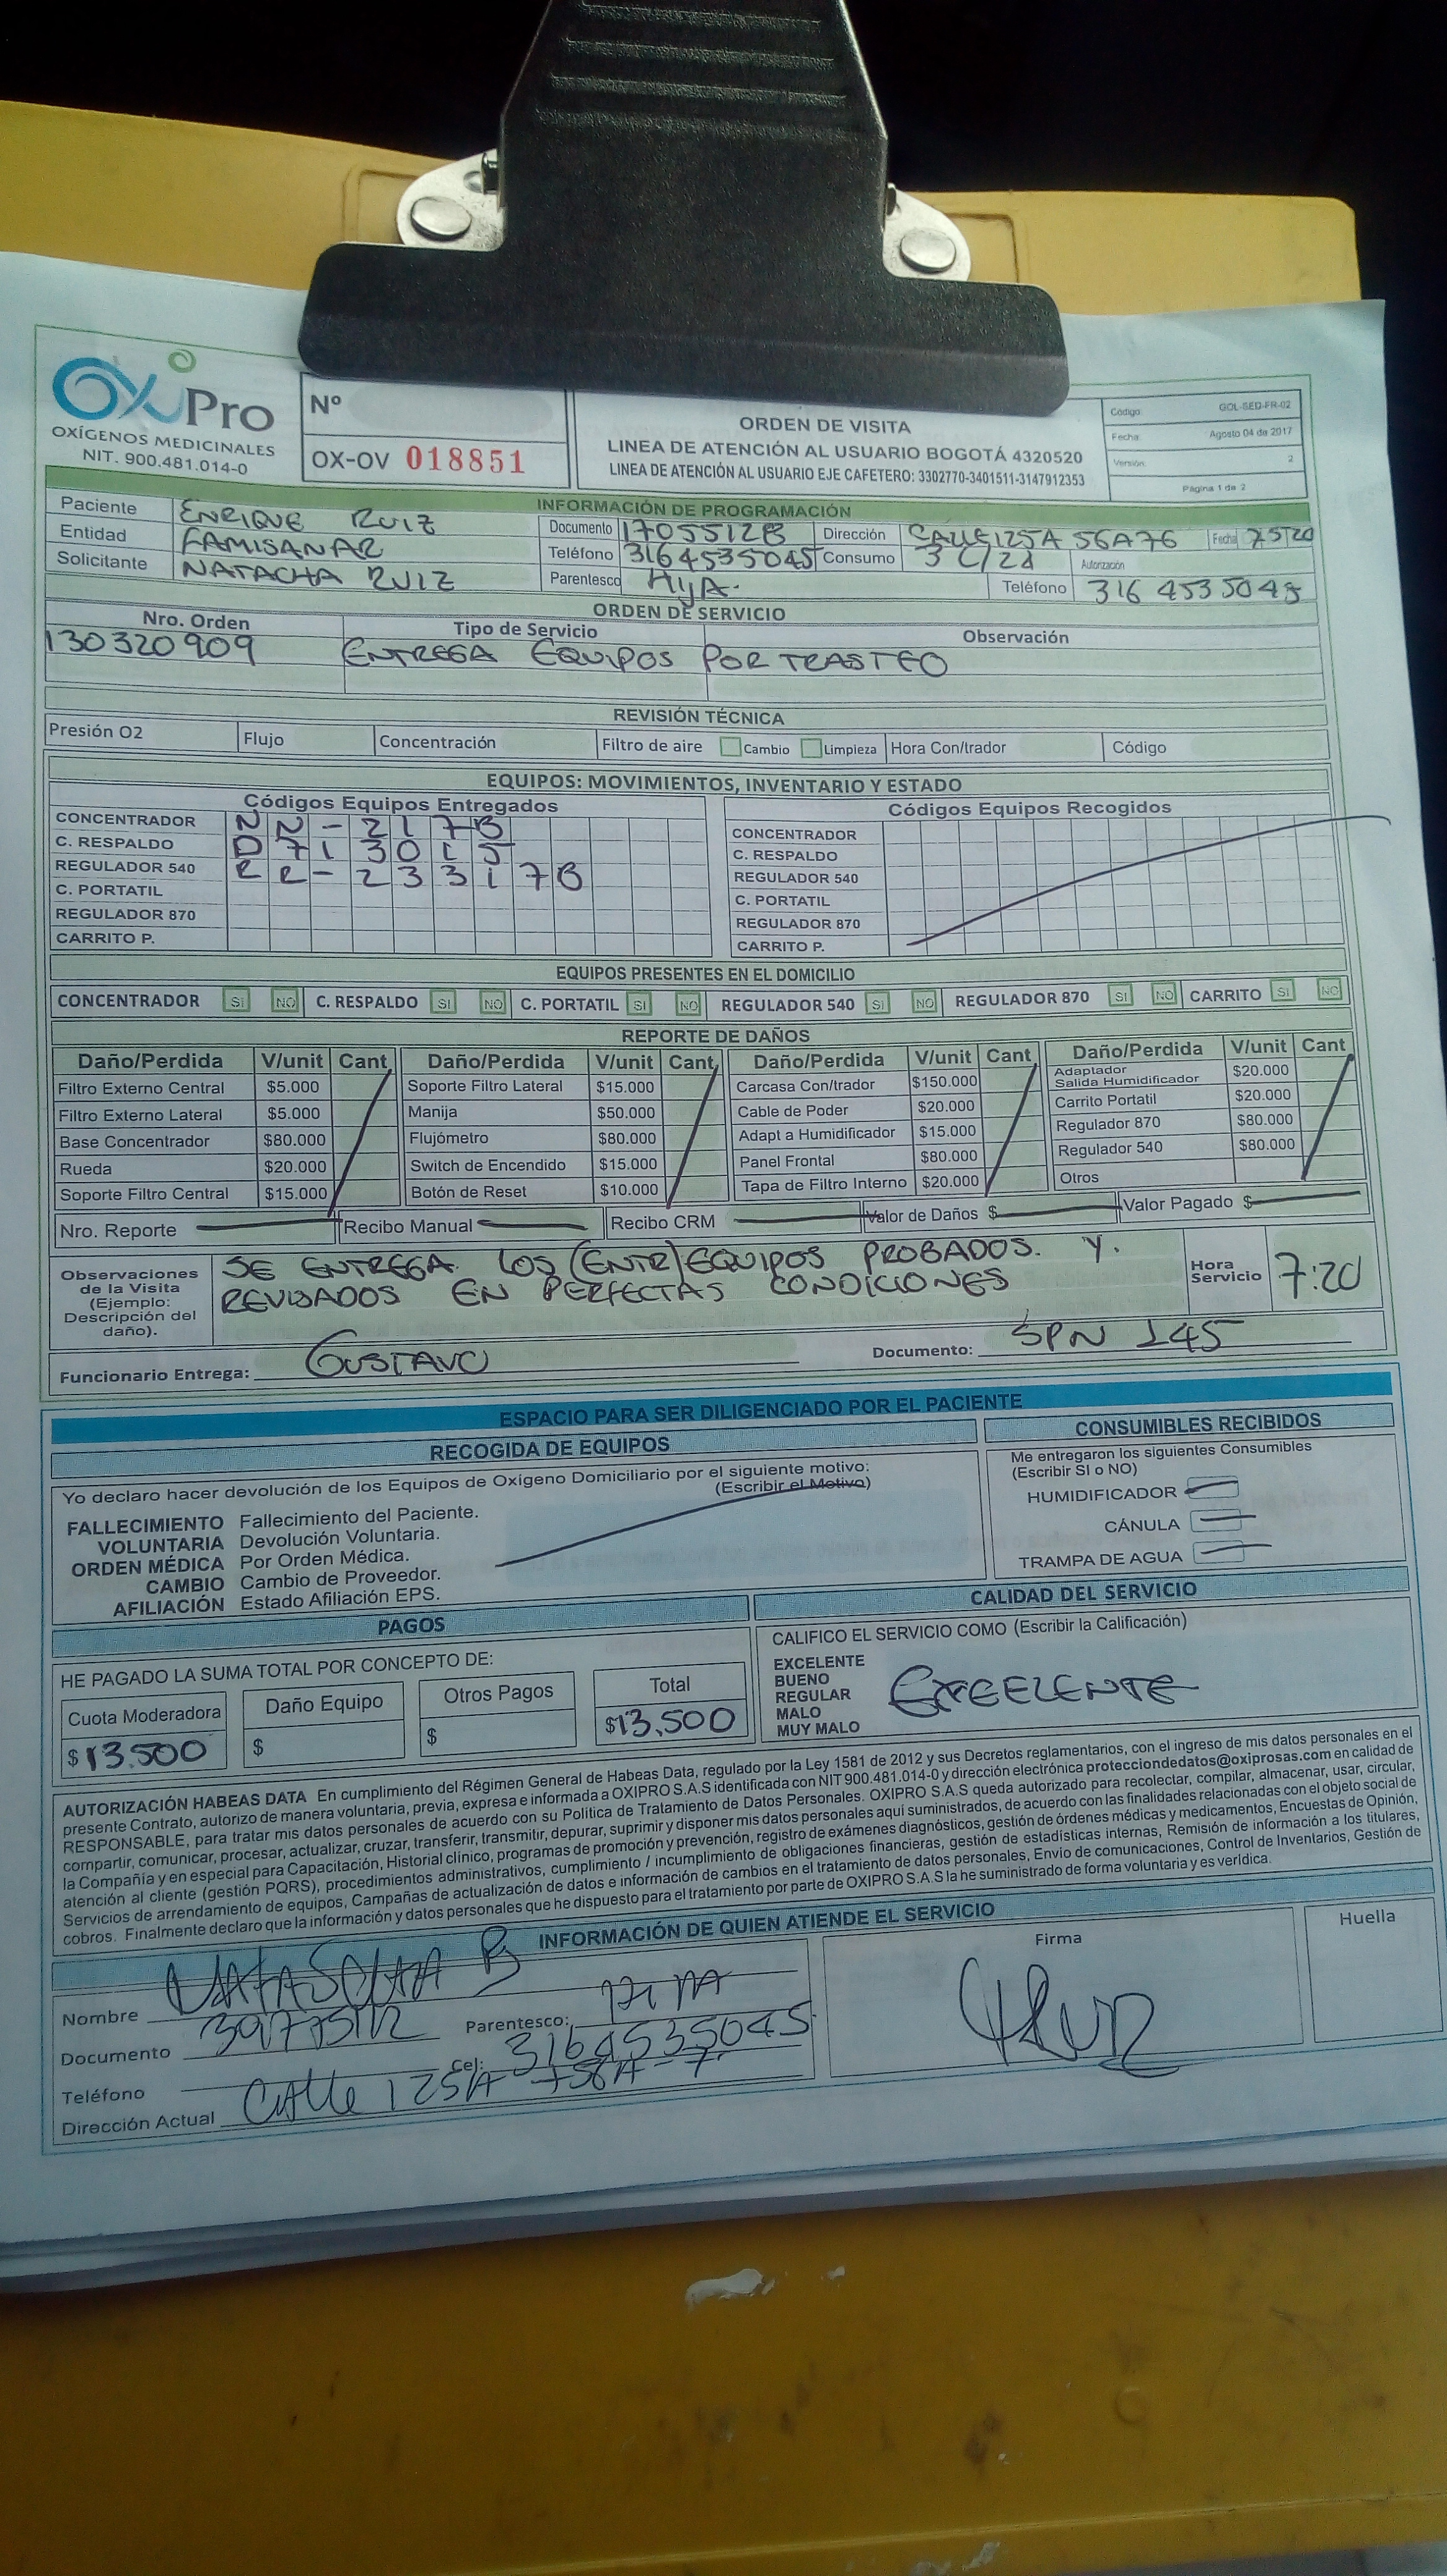 OxiPro
OXÍGENOS MEDICINALES
NIT. 900.481.014-0
Nº
OX-OV 018851
ORDEN DE VISITA
LINEA DE ATENCIÓN AL USUARIO BOGOTÁ 4320520
LINEA DE ATENCIÓN AL USUARIO EJE CAFETERO: 3302770-3401511-3147912353
Código: GOL-SED-FR-02
Fecha: Agosto 04 de 2017
Versión: 2
Página 1 de 2
INFORMACIÓN DE PROGRAMACIÓN
Paciente ENRIQUE RUIZ Documento 17055128 Dirección CALLE 125A 56A76 Fecha 7520
Entidad FAMISANAR Teléfono 3164535045 Consumo Autorización
Solicitante NATACHA RUIZ Parentesco HIJA. Teléfono 316 4535045
ORDEN DE SERVICIO
Nro. Orden Tipo de Servicio Observación
130320909 ENTREGA EQUIPOS POR TRASTEO
REVISIÓN TÉCNICA
Presión O2 Flujo Concentración Filtro de aire Cambio Limpieza Hora Con/trador Código
EQUIPOS: MOVIMIENTOS, INVENTARIO Y ESTADO
Códigos Equipos Entregados Códigos Equipos Recogidos
CONCENTRADOR NN-2178 CONCENTRADOR
C. RESPALDO D713015 C. RESPALDO
REGULADOR 540 RR-233178 REGULADOR 540
C. PORTATIL C. PORTATIL
REGULADOR 870 REGULADOR 870
CARRITO P. CARRITO P.
EQUIPOS PRESENTES EN EL DOMICILIO
CONCENTRADOR SI NO C. RESPALDO SI NO C. PORTATIL SI NO REGULADOR 540 SI NO REGULADOR 870 SI NO CARRITO SI NO
REPORTE DE DAÑOS
Daño/Perdida V/unit Cant Daño/Perdida V/unit Cant Daño/Perdida V/unit Cant Daño/Perdida V/unit Cant
Filtro Externo Central $5.000 Soporte Filtro Lateral $15.000 Carcasa Con/trador $150.000 Adaptador Salida Humidificador $20.000
Filtro Externo Lateral $5.000 Manija $50.000 Cable de Poder $20.000 Carrito Portatil $20.000
Base Concentrador $80.000 Flujómetro $80.000 Adapt a Humidificador $15.000 Regulador 870 $80.000
Rueda $20.000 Switch de Encendido $15.000 Panel Frontal $80.000 Regulador 540 $80.000
Soporte Filtro Central $15.000 Botón de Reset $10.000 Tapa de Filtro Interno $20.000 Otros
Nro. Reporte Recibo Manual Recibo CRM Valor de Daños $ Valor Pagado $
Observaciones de la Visita (Ejemplo: Descripción del daño).
SE ENTREGA LOS (ENTR) EQUIPOS PROBADOS. Y.
REVISADOS EN PERFECTAS CONDICIONES
Hora Servicio 7:20
Funcionario Entrega: GUSTAVO Documento: SPN 145
ESPACIO PARA SER DILIGENCIADO POR EL PACIENTE
RECOGIDA DE EQUIPOS
Yo declaro hacer devolución de los Equipos de Oxígeno Domiciliario por el siguiente motivo:
(Escribir el Motivo)
FALLECIMIENTO Fallecimiento del Paciente.
VOLUNTARIA Devolución Voluntaria.
ORDEN MÉDICA Por Orden Médica.
CAMBIO Cambio de Proveedor.
AFILIACIÓN Estado Afiliación EPS.
CONSUMIBLES RECIBIDOS
Me entregaron los siguientes Consumibles
(Escribir SI o NO)
HUMIDIFICADOR
CÁNULA
TRAMPA DE AGUA
PAGOS
HE PAGADO LA SUMA TOTAL POR CONCEPTO DE:
Cuota Moderadora Daño Equipo Otros Pagos Total
$13.500 $ $ $13.500
CALIDAD DEL SERVICIO
CALIFICO EL SERVICIO COMO (Escribir la Calificación)
EXCELENTE
BUENO
REGULAR
MALO
MUY MALO
AUTORIZACIÓN HABEAS DATA En cumplimiento del Régimen General de Habeas Data, regulado por la Ley 1581 de 2012 y sus Decretos reglamentarios, con el ingreso de mis datos personales en el
presente Contrato, autorizo de manera voluntaria, previa, expresa e informada a OXIPRO S.A.S identificada con NIT 900.481.014-0 y dirección electrónica protecciondedatos@oxiprosas.com en calidad de
RESPONSABLE, para tratar mis datos personales de acuerdo con su Política de Tratamiento de Datos Personales. OXIPRO S.A.S queda autorizado para recolectar, compilar, almacenar, usar, circular,
compartir, comunicar, procesar, actualizar, cruzar, transferir, transmitir, depurar, suprimir y disponer mis datos personales aquí suministrados, de acuerdo con las finalidades relacionadas con el objeto social de
la Compañía y en especial para Capacitación, Historial clínico, programas de promoción y prevención, registro de exámenes diagnósticos, gestión de órdenes médicas y medicamentos, Encuestas de Opinión,
atención al cliente (gestión PQRS), procedimientos administrativos, cumplimiento / incumplimiento de obligaciones financieras, gestión de estadísticas internas, Remisión de información a los titulares,
Servicios de arrendamiento de equipos, Campañas de actualización de datos e información de cambios en el tratamiento de datos personales, Envío de comunicaciones, Control de Inventarios, Gestión de
cobros. Finalmente declaro que la información y datos personales que he dispuesto para el tratamiento por parte de OXIPRO S.A.S la he suministrado de forma voluntaria y es verídica.
INFORMACIÓN DE QUIEN ATIENDE EL SERVICIO
Nombre Parentesco:
Documento Cel: 3164535045
Teléfono
Dirección Actual Calle 125A
Firma
Huella